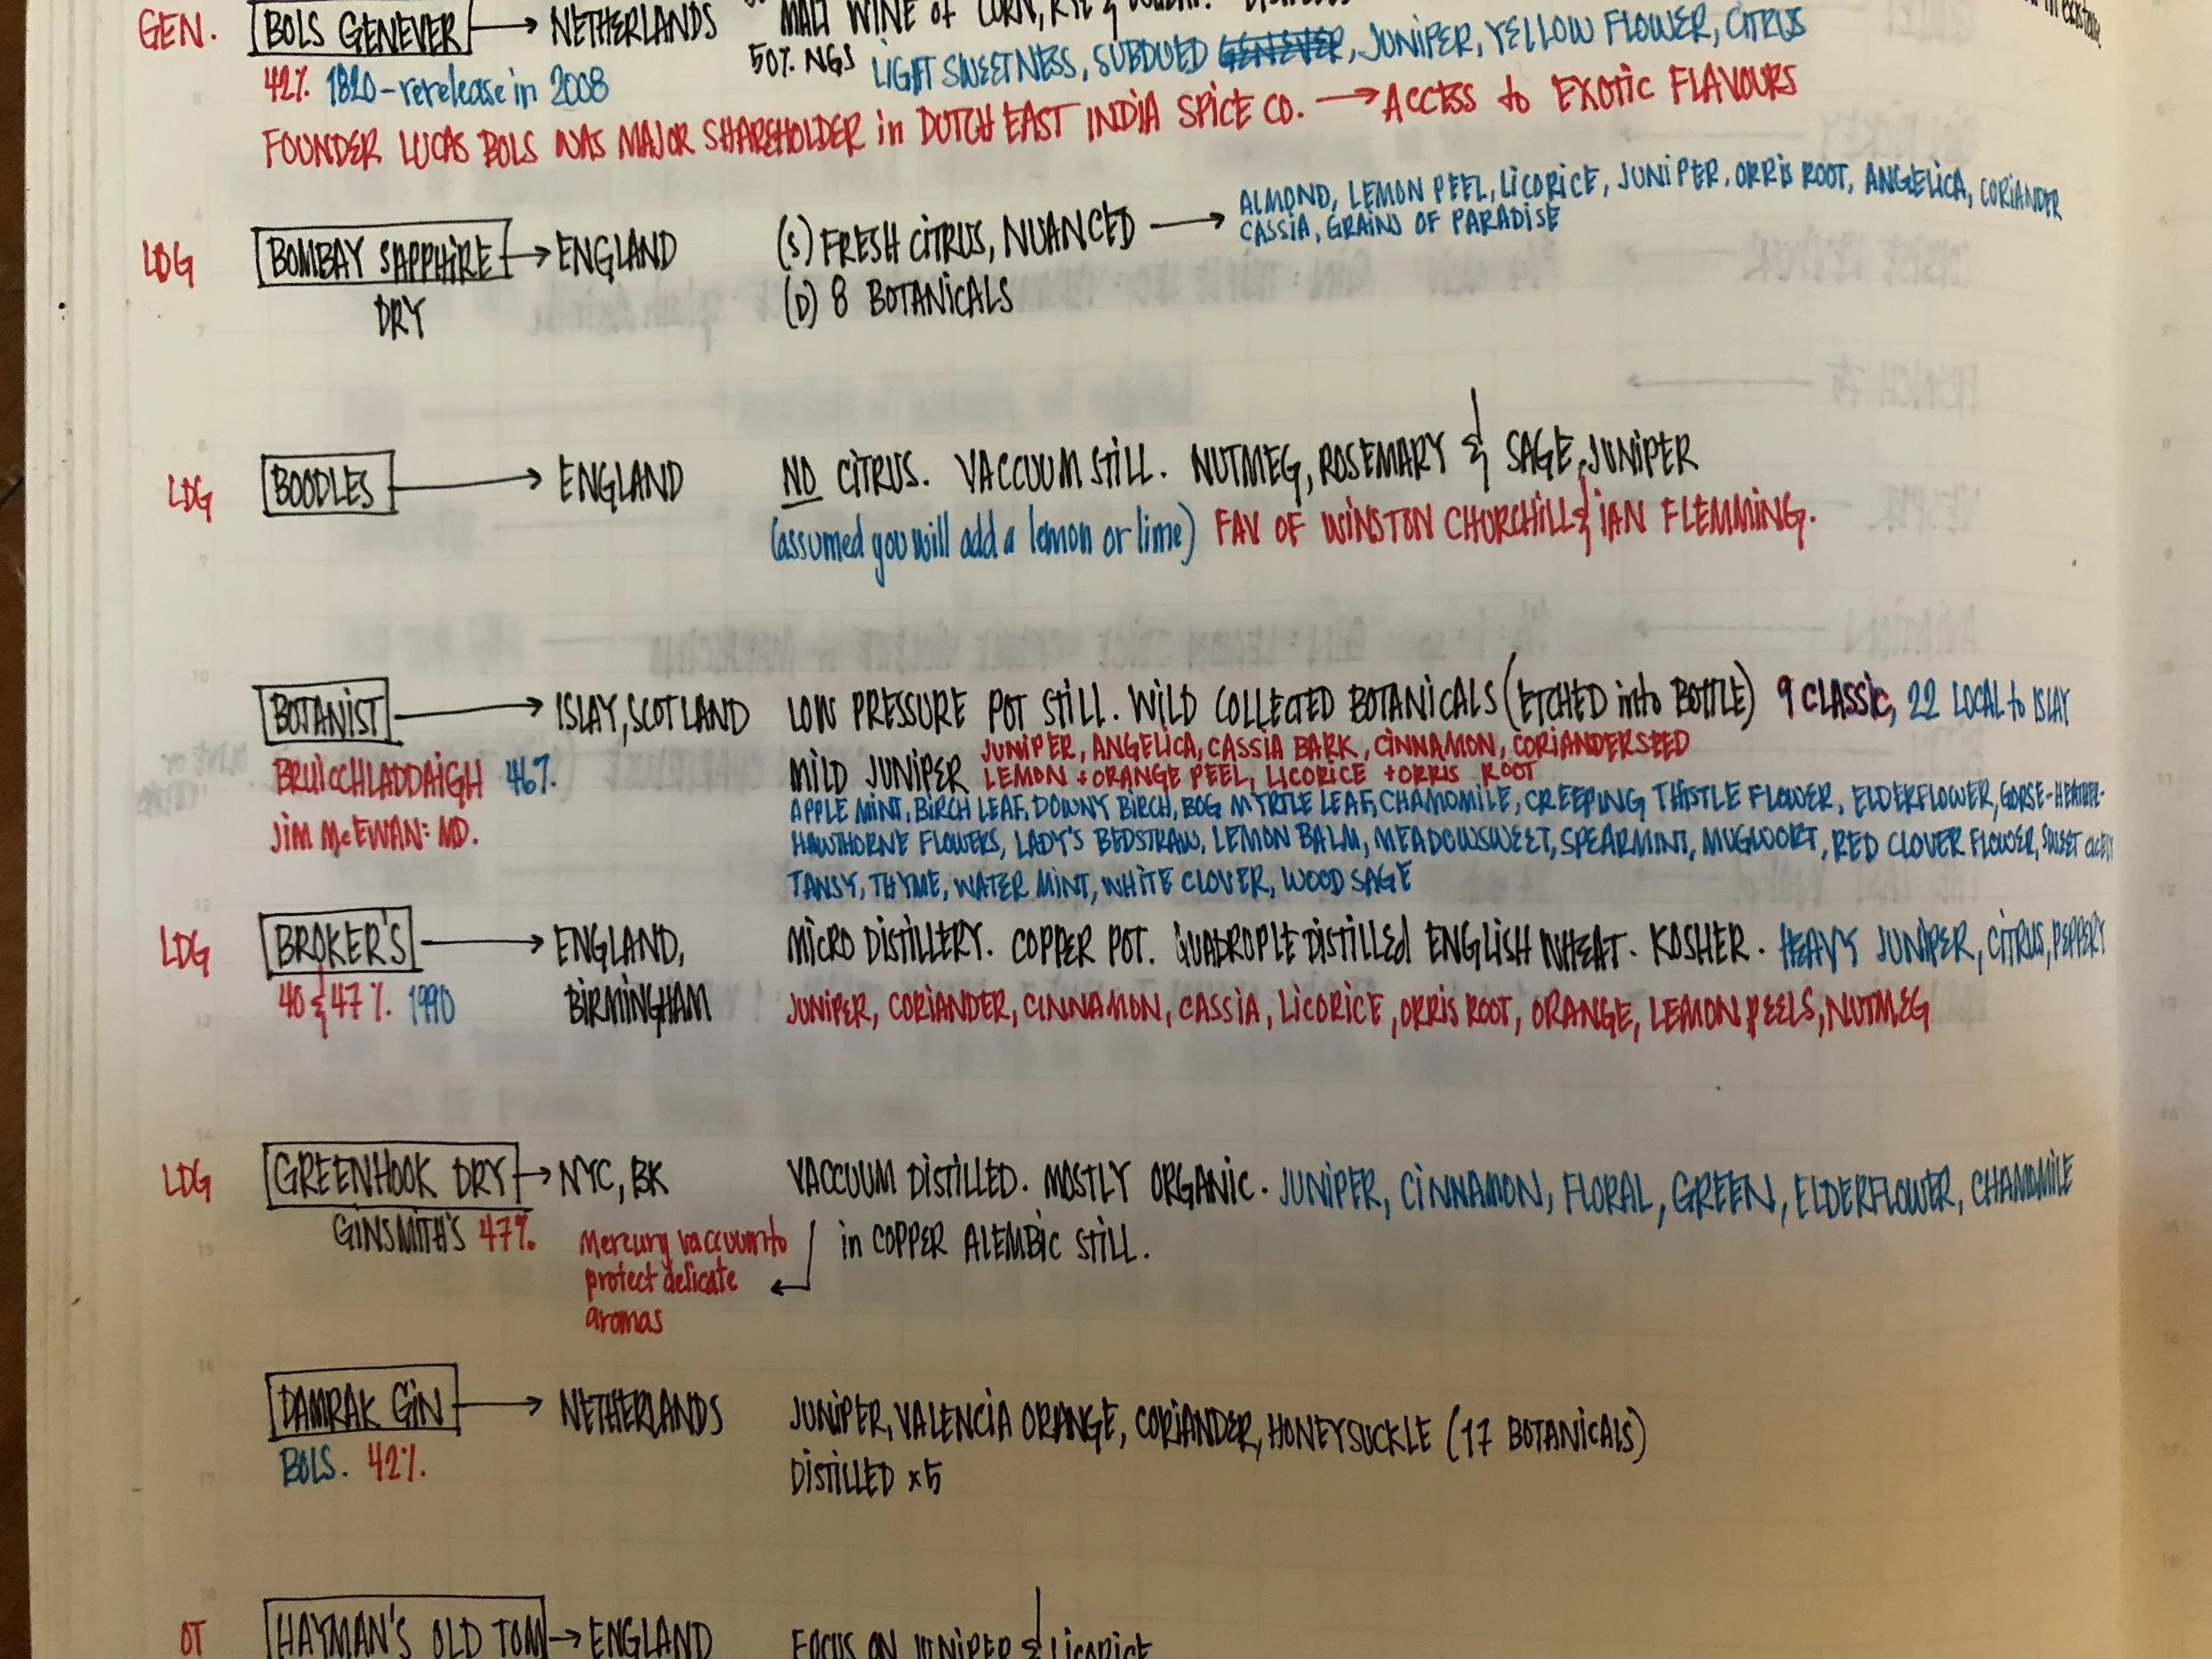 GEN. BOLS GENEVER → NETHERLANDS MALT WINE of CORN, RYE & WHEAT.
50% NGS LIGHT SWEETNESS, SUBDUED GENEVER, JUNIPER, YELLOW FLOWER, CITRUS
42% 1820-rerelease in 2008
FOUNDER LUCAS BOLS WAS MAJOR SHAREHOLDER in DUTCH EAST INDIA SPICE CO. → ACCESS to EXOTIC FLAVOURS
LDG BOMBAY SAPPHIRE → ENGLAND (S) FRESH CITRUS, NUANCED → ALMOND, LEMON PEEL, LICORICE, JUNIPER, ORRIS ROOT, ANGELICA, CORIANDER
CASSIA, GRAINS OF PARADISE
DRY (D) 8 BOTANICALS
LDG BOODLES → ENGLAND NO CITRUS. VACCUUM STILL. NUTMEG, ROSEMARY & SAGE, JUNIPER
(assumed you will add a lemon or lime) FAV OF WINSTON CHURCHILL & IAN FLEMMING.
BOTANIST → ISLAY, SCOTLAND LOW PRESSURE POT STILL. WILD COLLECTED BOTANICALS (ETCHED into BOTTLE) 9 CLASSIC, 22 LOCAL to ISLAY
BRUICCHLADDAIGH 46% MILD JUNIPER JUNIPER, ANGELICA, CASSIA BARK, CINNAMON, CORIANDER SEED
LEMON + ORANGE PEEL, LICORICE + ORRIS ROOT
APPLE MINT, BIRCH LEAF, DOWNY BIRCH, BOG MYRTLE LEAF, CHAMOMILE, CREEPING THISTLE FLOWER, ELDERFLOWER, GORSE-HEATHER-
JIM McEWAN: MD. HAWTHORNE FLOWERS, LADY'S BEDSTRAW, LEMON BALM, MEADOWSWEET, SPEARMINT, MUGWORT, RED CLOVER FLOWER, SWEET CICELY
TANSY, THYME, WATER MINT, WHITE CLOVER, WOOD SAGE
LDG BROKER'S → ENGLAND, MICRO DISTILLERY. COPPER POT. QUADROPLE DISTILLED ENGLISH WHEAT. KOSHER. HEAVY JUNIPER, CITRUS, PEPPERY
40 & 47% 1990 BIRMINGHAM JUNIPER, CORIANDER, CINNAMON, CASSIA, LICORICE, ORRIS ROOT, ORANGE, LEMON PEELS, NUTMEG
LDG GREENHOOK DRY → NYC, BK VACCUUM DISTILLED. MOSTLY ORGANIC. JUNIPER, CINNAMON, FLORAL, GREEN, ELDERFLOWER, CHAMOMILE
GINSMITH'S 47% Mercury vaccuum to in COPPER ALEMBIC STILL.
protect delicate
aromas
DAMRAK GIN → NETHERLANDS JUNIPER, VALENCIA ORANGE, CORIANDER, HONEYSUCKLE (17 BOTANICALS)
BOLS. 42% DISTILLED x5
OT HAYMAN'S OLD TOM → ENGLAND FOCUS ON JUNIPER & LICORICE